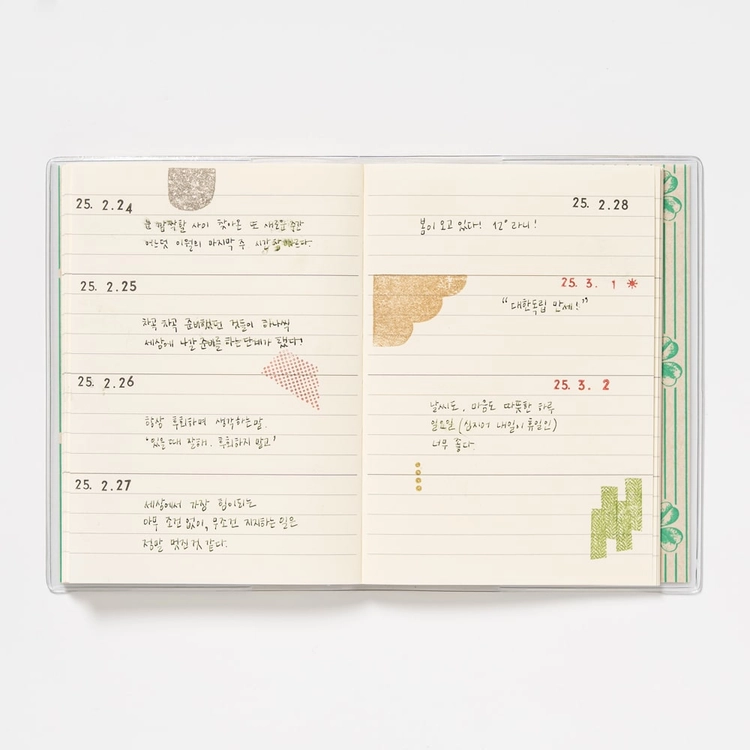 25. 2.24
눈 깜짝할 사이 찾아온 또 새로운 주간
어느덧 이월의 마지막 주 시간 참 빠르다.
25. 2.25
차곡 차곡 준비했던 것들이 하나씩
세상에 나갈 준비를 하는 단계가 됐다!
25. 2.26
항상 후회하며 생각하는 말.
'있을 때 잘해. 후회하지 말고'
25. 2.27
세상에서 가장 힘이되는
아무 조건 없이, 무조건 지지하는 일은
정말 멋진 것 같다.
25. 2.28
봄이 오고 있다! 12° 라니!
25. 3. 1
"대한독립 만세!"
25. 3. 2
날씨도, 마음도 따뜻한 하루
일요일 (심지어 내일이 휴일인)
너무 좋다.